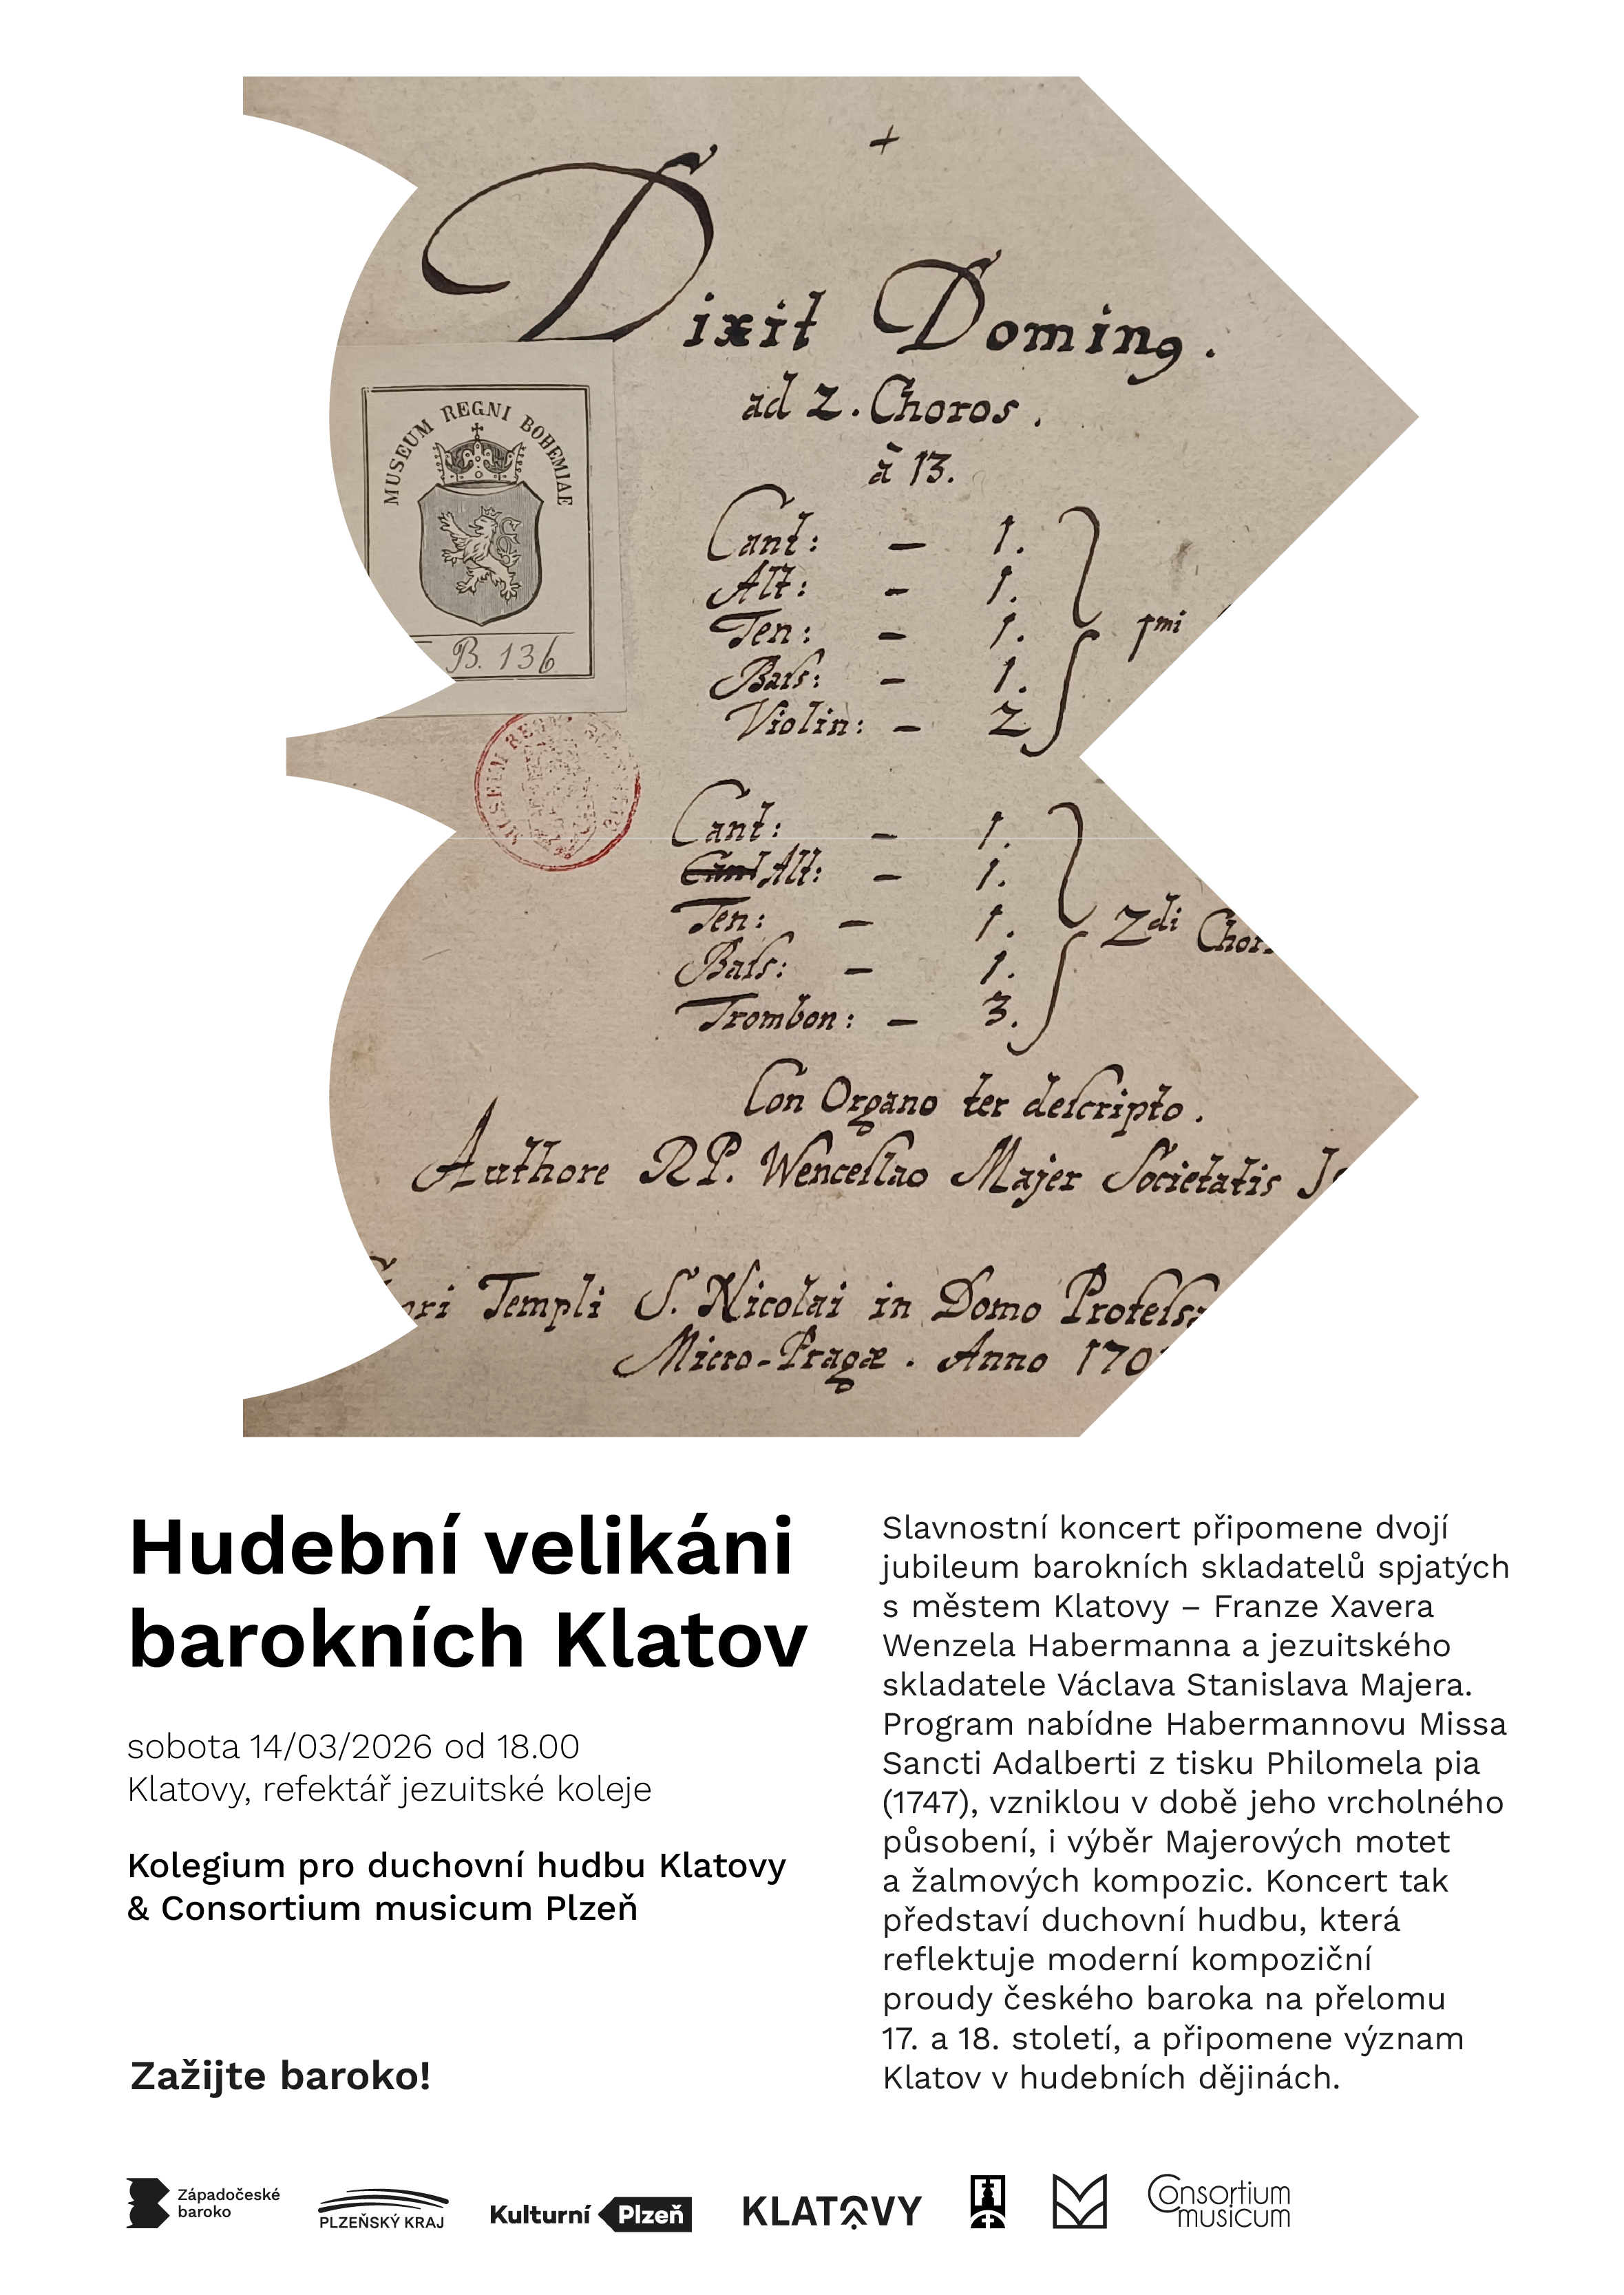 +
Dixit Doming.
ad 2. Choros.
à 13.
MUSEUM REGNI BOHEMIAE
B. 136
Cant: – 1.
Alt: – 1.
Ten: – 1.
Bass: – 1.
Violin: – 2
1mi
Cant: – 1.
Cant Alt: – 1.
Ten: – 1.
Bass: – 1.
Trombon: – 3.
2di Chori
MUSEUM REGNI
Con Organo ter descripto.
Authore RP. Wenceslao Majer Societatis
Templi S. Nicolai in Domo
Micro-Pragæ. Anno
Hudební velikáni
barokních Klatov
sobota 14/03/2026 od 18.00
Klatovy, refektář jezuitské koleje
Kolegium pro duchovní hudbu Klatovy
& Consortium musicum Plzeň
Zažijte baroko!
Slavnostní koncert připomene dvojí
jubileum barokních skladatelů spjatých
s městem Klatovy – Franze Xavera
Wenzela Habermanna a jezuitského
skladatele Václava Stanislava Majera.
Program nabídne Habermannovu Missa
Sancti Adalberti z tisku Philomela pia
(1747), vzniklou v době jeho vrcholného
působení, i výběr Majerových motet
a žalmových kompozic. Koncert tak
představí duchovní hudbu, která
reflektuje moderní kompoziční
proudy českého baroka na přelomu
17. a 18. století, a připomene význam
Klatov v hudebních dějinách.
Západočeské
baroko
PLZEŇSKÝ KRAJ
Kulturní Plzeň
KLATOVY
Consortium
musicum